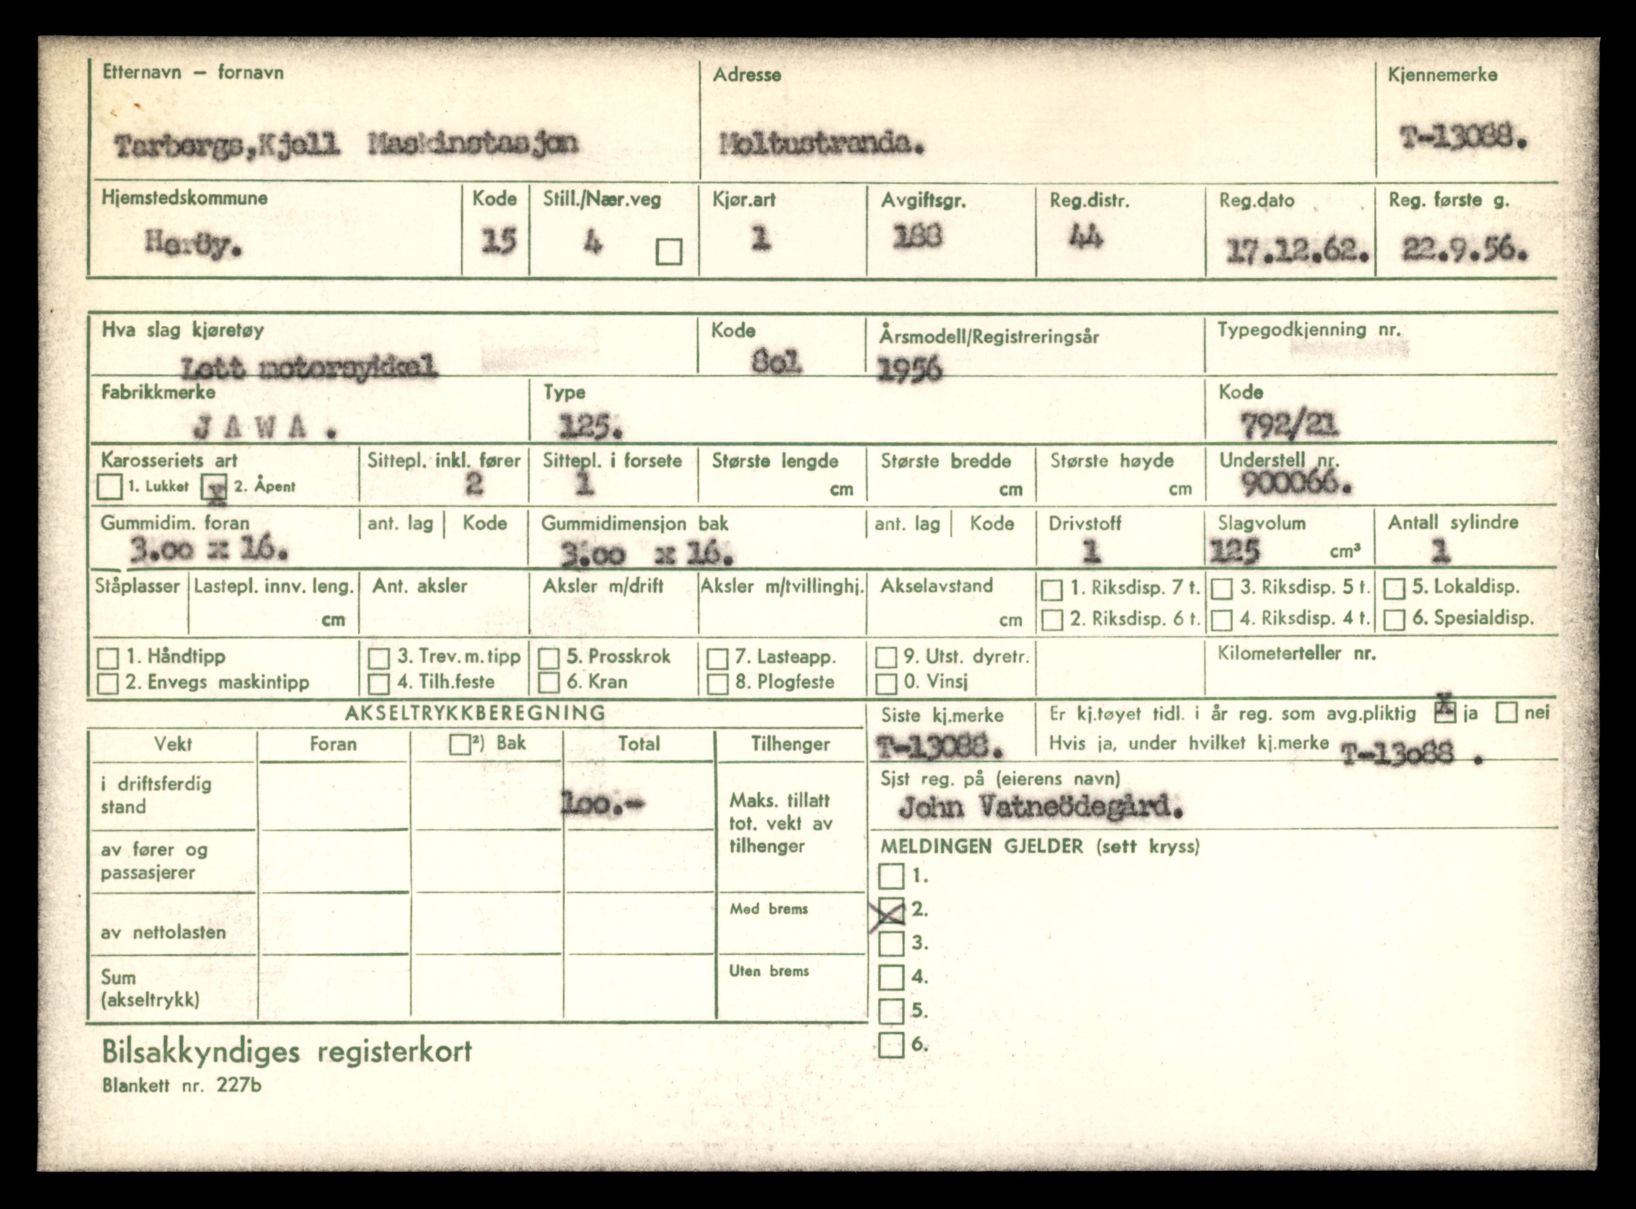 Etternavn — fornavn Adresse Kjennemerke
Tarbergs,Kjell Maskinstasjon Moltustranda. T-13088.
Hjemstedskommune Kode Still./Nær.veg Kjør.art Avgiftsgr. Reg.distr. Reg.dato Reg. første g.
Heröy. 15 4 1 188 44 17.12.62. 22.9.56.
Hva slag kjøretøy Kode Årsmodell/Registreringsår Typegodkjenning nr.
Lett motorsykkel 8o1 1956
Fabrikkmerke Type Kode
J A W A . 125. 792/21
Karosseriets art Sittepl. inkl. fører Sittepl. i forsete Største lengde Største bredde Største høyde Understell nr.
1. Lukket x 2. Åpent 2 1 cm cm cm 900066.
Gummidim. foran ant. lag Kode Gummidimensjon bak ant. lag Kode Drivstoff Slagvolum Antall sylindre
3.oo x 16. 3.oo x 16. 1 125 cm³ 1
Ståplasser Lastepl. innv. leng. Ant. aksler Aksler m/drift Aksler m/tvillinghj. Akselavstand 1. Riksdisp. 7 t. 3. Riksdisp. 5 t. 5. Lokaldisp.
cm cm 2. Riksdisp. 6 t. 4. Riksdisp. 4 t. 6. Spesialdisp.
1. Håndtipp 3. Trev. m. tipp 5. Prosskrok 7. Lasteapp. 9. Utst. dyretr. Kilometerteller nr.
2. Envegs maskintipp 4. Tilh.feste 6. Kran 8. Plogfeste 0. Vinsj
AKSELTRYKKBEREGNING Siste kj.merke Er kj.tøyet tidl. i år reg. som avg.pliktig x ja nei
Vekt Foran ²) Bak Total Tilhenger T-13088. Hvis ja, under hvilket kj.merke T-13o88 .
i driftsferdig stand 1oo.- Maks. tillatt tot. vekt av tilhenger Sist reg. på (eierens navn)
John Vatneödegård.
av fører og passasjerer MELDINGEN GJELDER (sett kryss)
1.
av nettolasten Med brems X 2.
3.
Sum (akseltrykk) Uten brems 4.
5.
6.
Bilsakkyndiges registerkort
Blankett nr. 227b